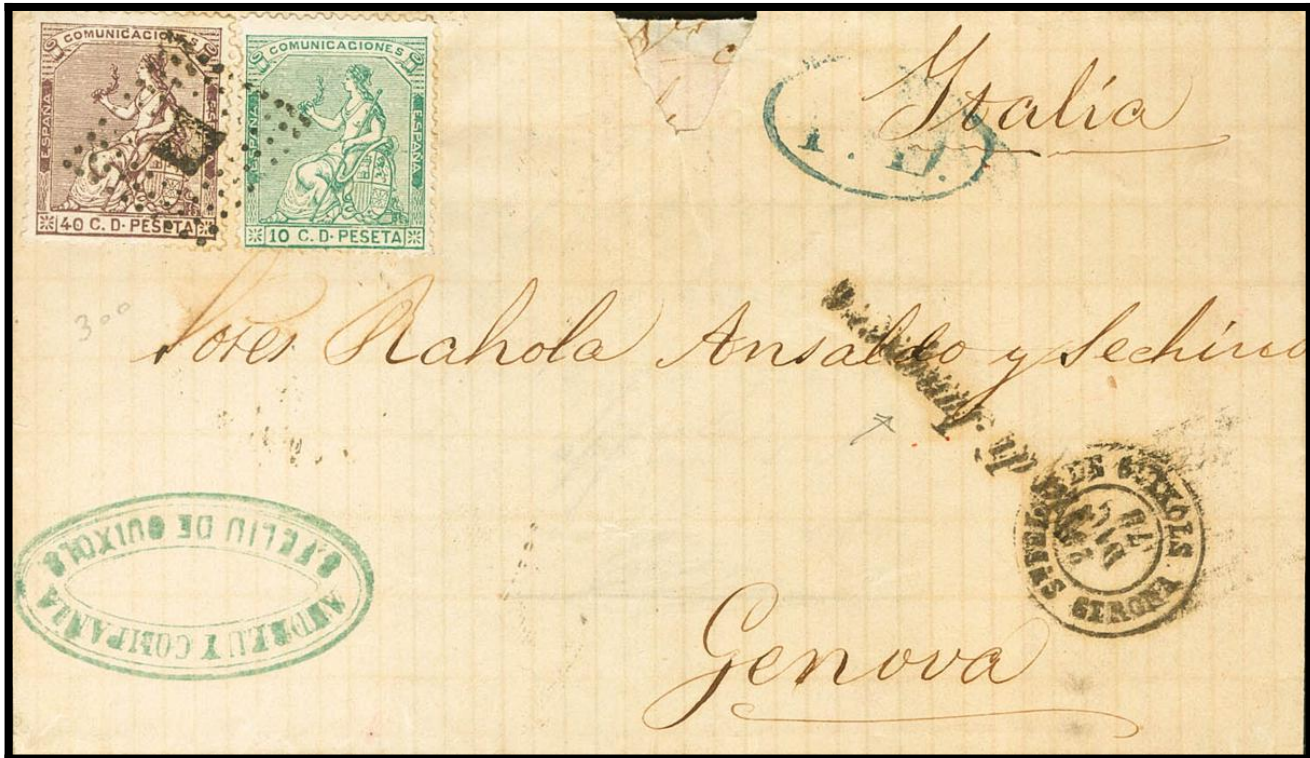 COMUNICACIONES
ESPAÑA
40 C. D. PESETA
COMUNICACIONES
ESPAÑA
ESPAÑA
10 C. D. PESETA
Italia
300
Rahola Ansaldo y
S. FELIU DE GUIXOLS
GERONA
ANDREU Y COMPAÑIA
S. FELIU DE GUIXOLS
Genova